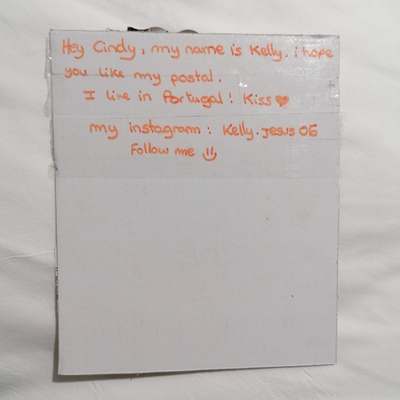 Hey Cindy, my name is Kelly. i hope
you like my postal.
I live in Portugal! Kiss ♥
my instagram: Kelly.jesus06
Follow me